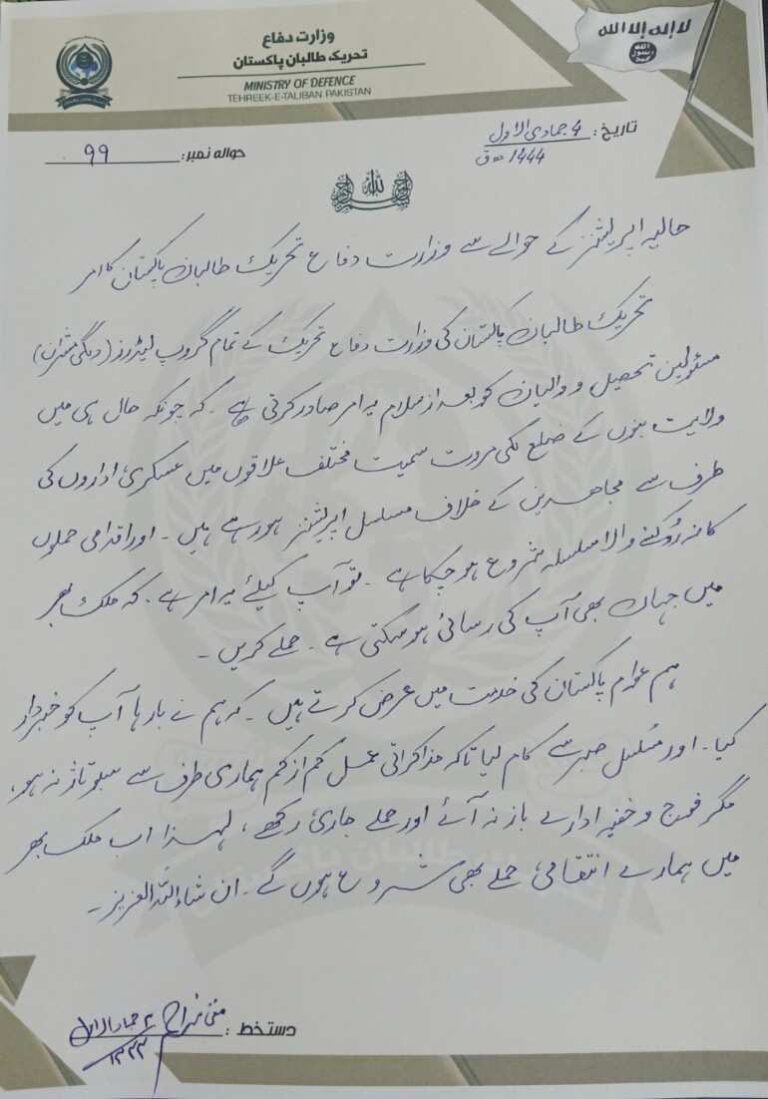 وزارت دفاع
تحریک طالبان پاکستان
MINISTRY OF DEFENCE
TEHREEK-E-TALIBAN PAKISTAN
لا إله إلا الله
الله
رسول
محمد
تاریخ: 4 جمادی الاول
1444 ھ ق
حوالہ نمبر: 99
حالیہ اپریشنز کے حوالے سے وزارت دفاع تحریک طالبان پاکستان کا امر
تحریک طالبان پاکستان کی وزارت دفاع تحریک کے تمام گروپ لیڈروز (دلگی مشران)
مسئولین تحصیل و والیان کو بعد از سلام یہ امر صادر کرتی ہے۔ کہ چونکہ حال ہی میں
ولایت بنوں کے ضلع لکی مروت سمیت مختلف علاقوں میں عسکری اداروں کی
طرف سے مجاھدین کے خلاف مسلسل اپریشنز ہو رہے ہیں۔ اور اقدامی حملوں
کا نہ رُکنے والا سلسلہ شروع ہو چکا ہے۔ تو آپ کیلئے یہ امر ہے۔ کہ ملک بھر
میں جہاں بھی آپ کی رسائی ہو سکتی ہے۔ حملے کریں۔
ہم عوام پاکستان کی خدمت میں عرض کرتے ہیں۔ کہ ہم نے بارہا آپ کو خبردار
کیا۔ اور مسلسل صبر سے کام لیا تاکہ مذاکراتی عمل کم از کم ہماری طرف سے سبوتاژ نہ ہو،
مگر فوج و خفیہ ادارے باز نہ آئے اور حملے جاری رکھے، لہذا اب ملک بھر
میں ہمارے انتقامی حملے بھی شروع ہوں گے۔ ان شاءاللہ العزیز۔
دستخط: